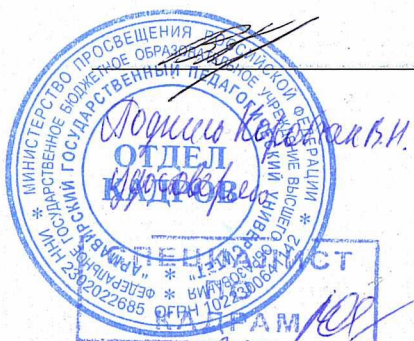 МИНИСТЕРСТВО ПРОСВЕЩЕНИЯ РОССИЙСКОЙ ФЕДЕРАЦИИ *
ФЕДЕРАЛЬНОЕ ГОСУДАРСТВЕННОЕ БЮДЖЕТНОЕ ОБРАЗОВАТЕЛЬНОЕ УЧРЕЖДЕНИЕ ВЫСШЕГО ОБРАЗОВАНИЯ *
"АРМАВИРСКИЙ ГОСУДАРСТВЕННЫЙ ПЕДАГОГИЧЕСКИЙ УНИВЕРСИТЕТ" *
ИНН 2302022685 ОГРН
Подпись
В.Н.
ОТДЕЛ
КАДРОВ
удостоверяю
СПЕЦИАЛИСТ
КАДРАМ